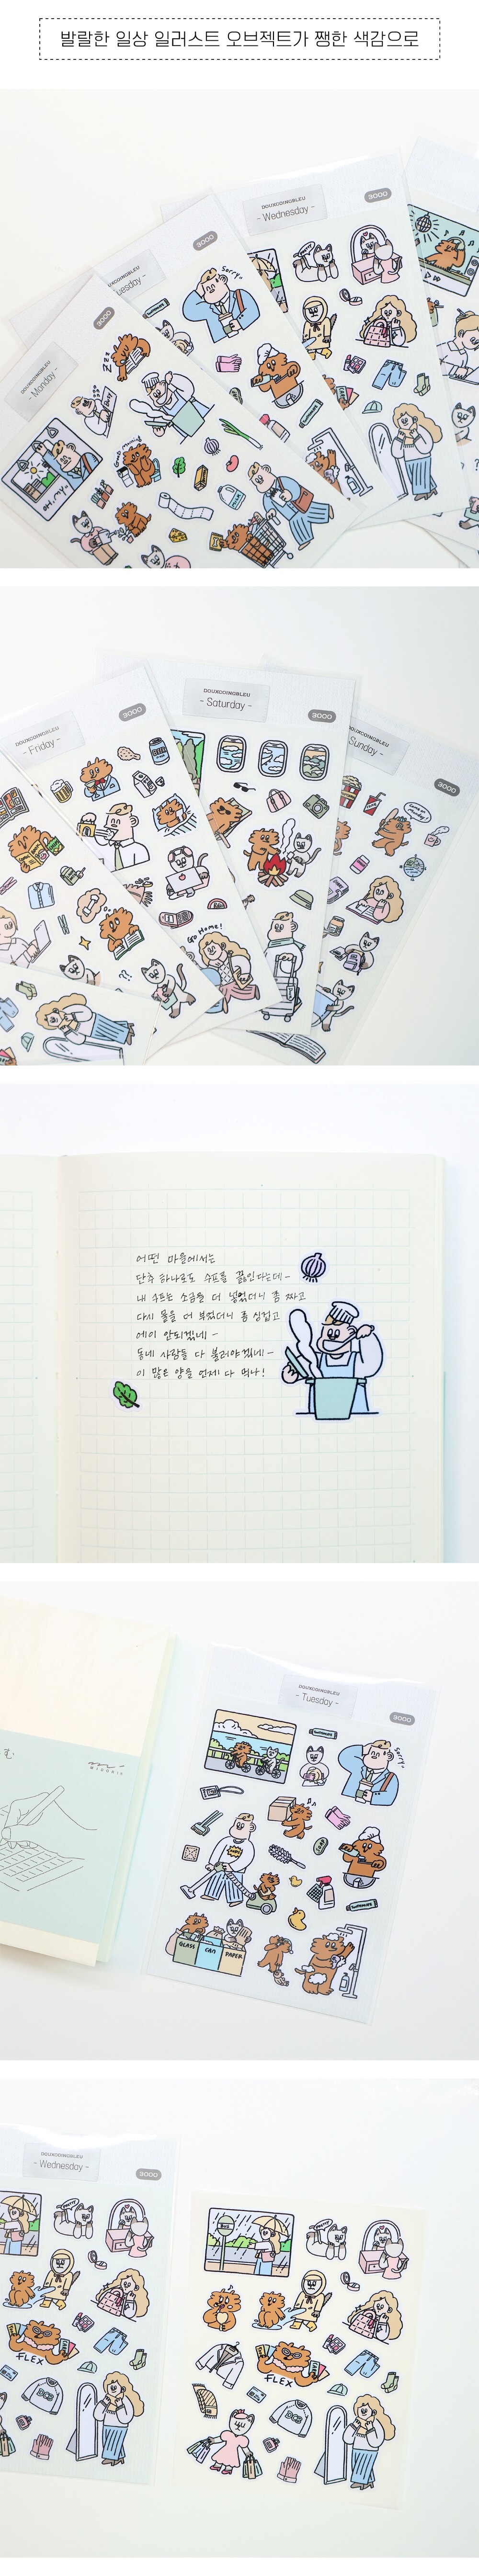 발랄한 일상 일러스트 오브젝트가 쨍한 색감으로
DOUXOOINGBLEU
- Wednesday -
3000
DOUXOOINGBLEU
Tuesday -
3000
Sorry~
DOUXOOINGBLEU
- Monday -
3000
Zzz
oh, my..
DOUXOOINGBLEU
- Saturday -
3000
DOUXOOINGBLEU
- Friday -
3000
Sunday -
3000
Go Home!
??
어떤 마을에서는
단추 하나로도 수프를 끓인다는데-
내 수프는 소금을 더 넣었더니 좀 짜고
다시 물을 더 부었더니 좀 싱겁고
에이 안되겠네 -
동네 사람들 다 불러야겠네-
이 많은 양을 언제 다 먹나!
DOUXOOINGBLEU
- Tuesday -
3000
Sorry~
GLASS
CAN
PAPER
DOUXOOINGBLEU
- Wednesday -
3000
FLEX
FLEX